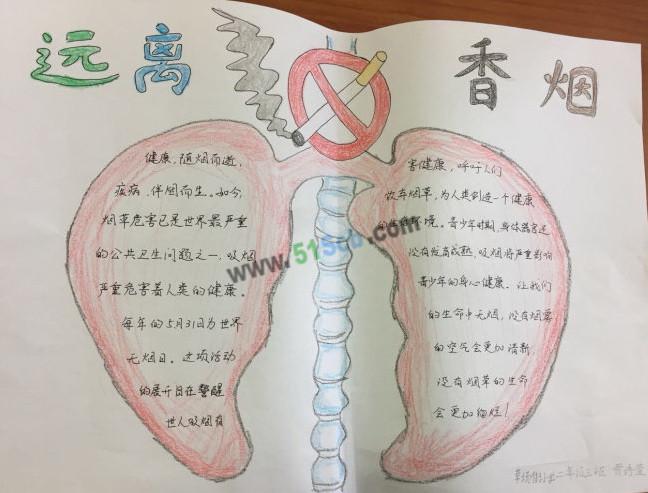 远离
香烟
健康,随烟而逝,
疾病,伴烟而生。如今,
烟草危害已是世界最严重
的公共卫生问题之一,吸烟
严重危害着人类的健康。
每年的5月31日为世界
无烟日。这项活动
的展开旨在警醒
世人吸烟有
害健康,呼吁人们
放弃烟草,为人类创造一个健康
的 环境。青少年时期,身体器官还
没有发育成熟,吸烟将严重影响
青少年的身心健康。让我们
的生命中无烟,没有烟雾
的空气会更加清新,
没有烟草的生命
会更加绚烂!
www.515cb.com
二年级三班